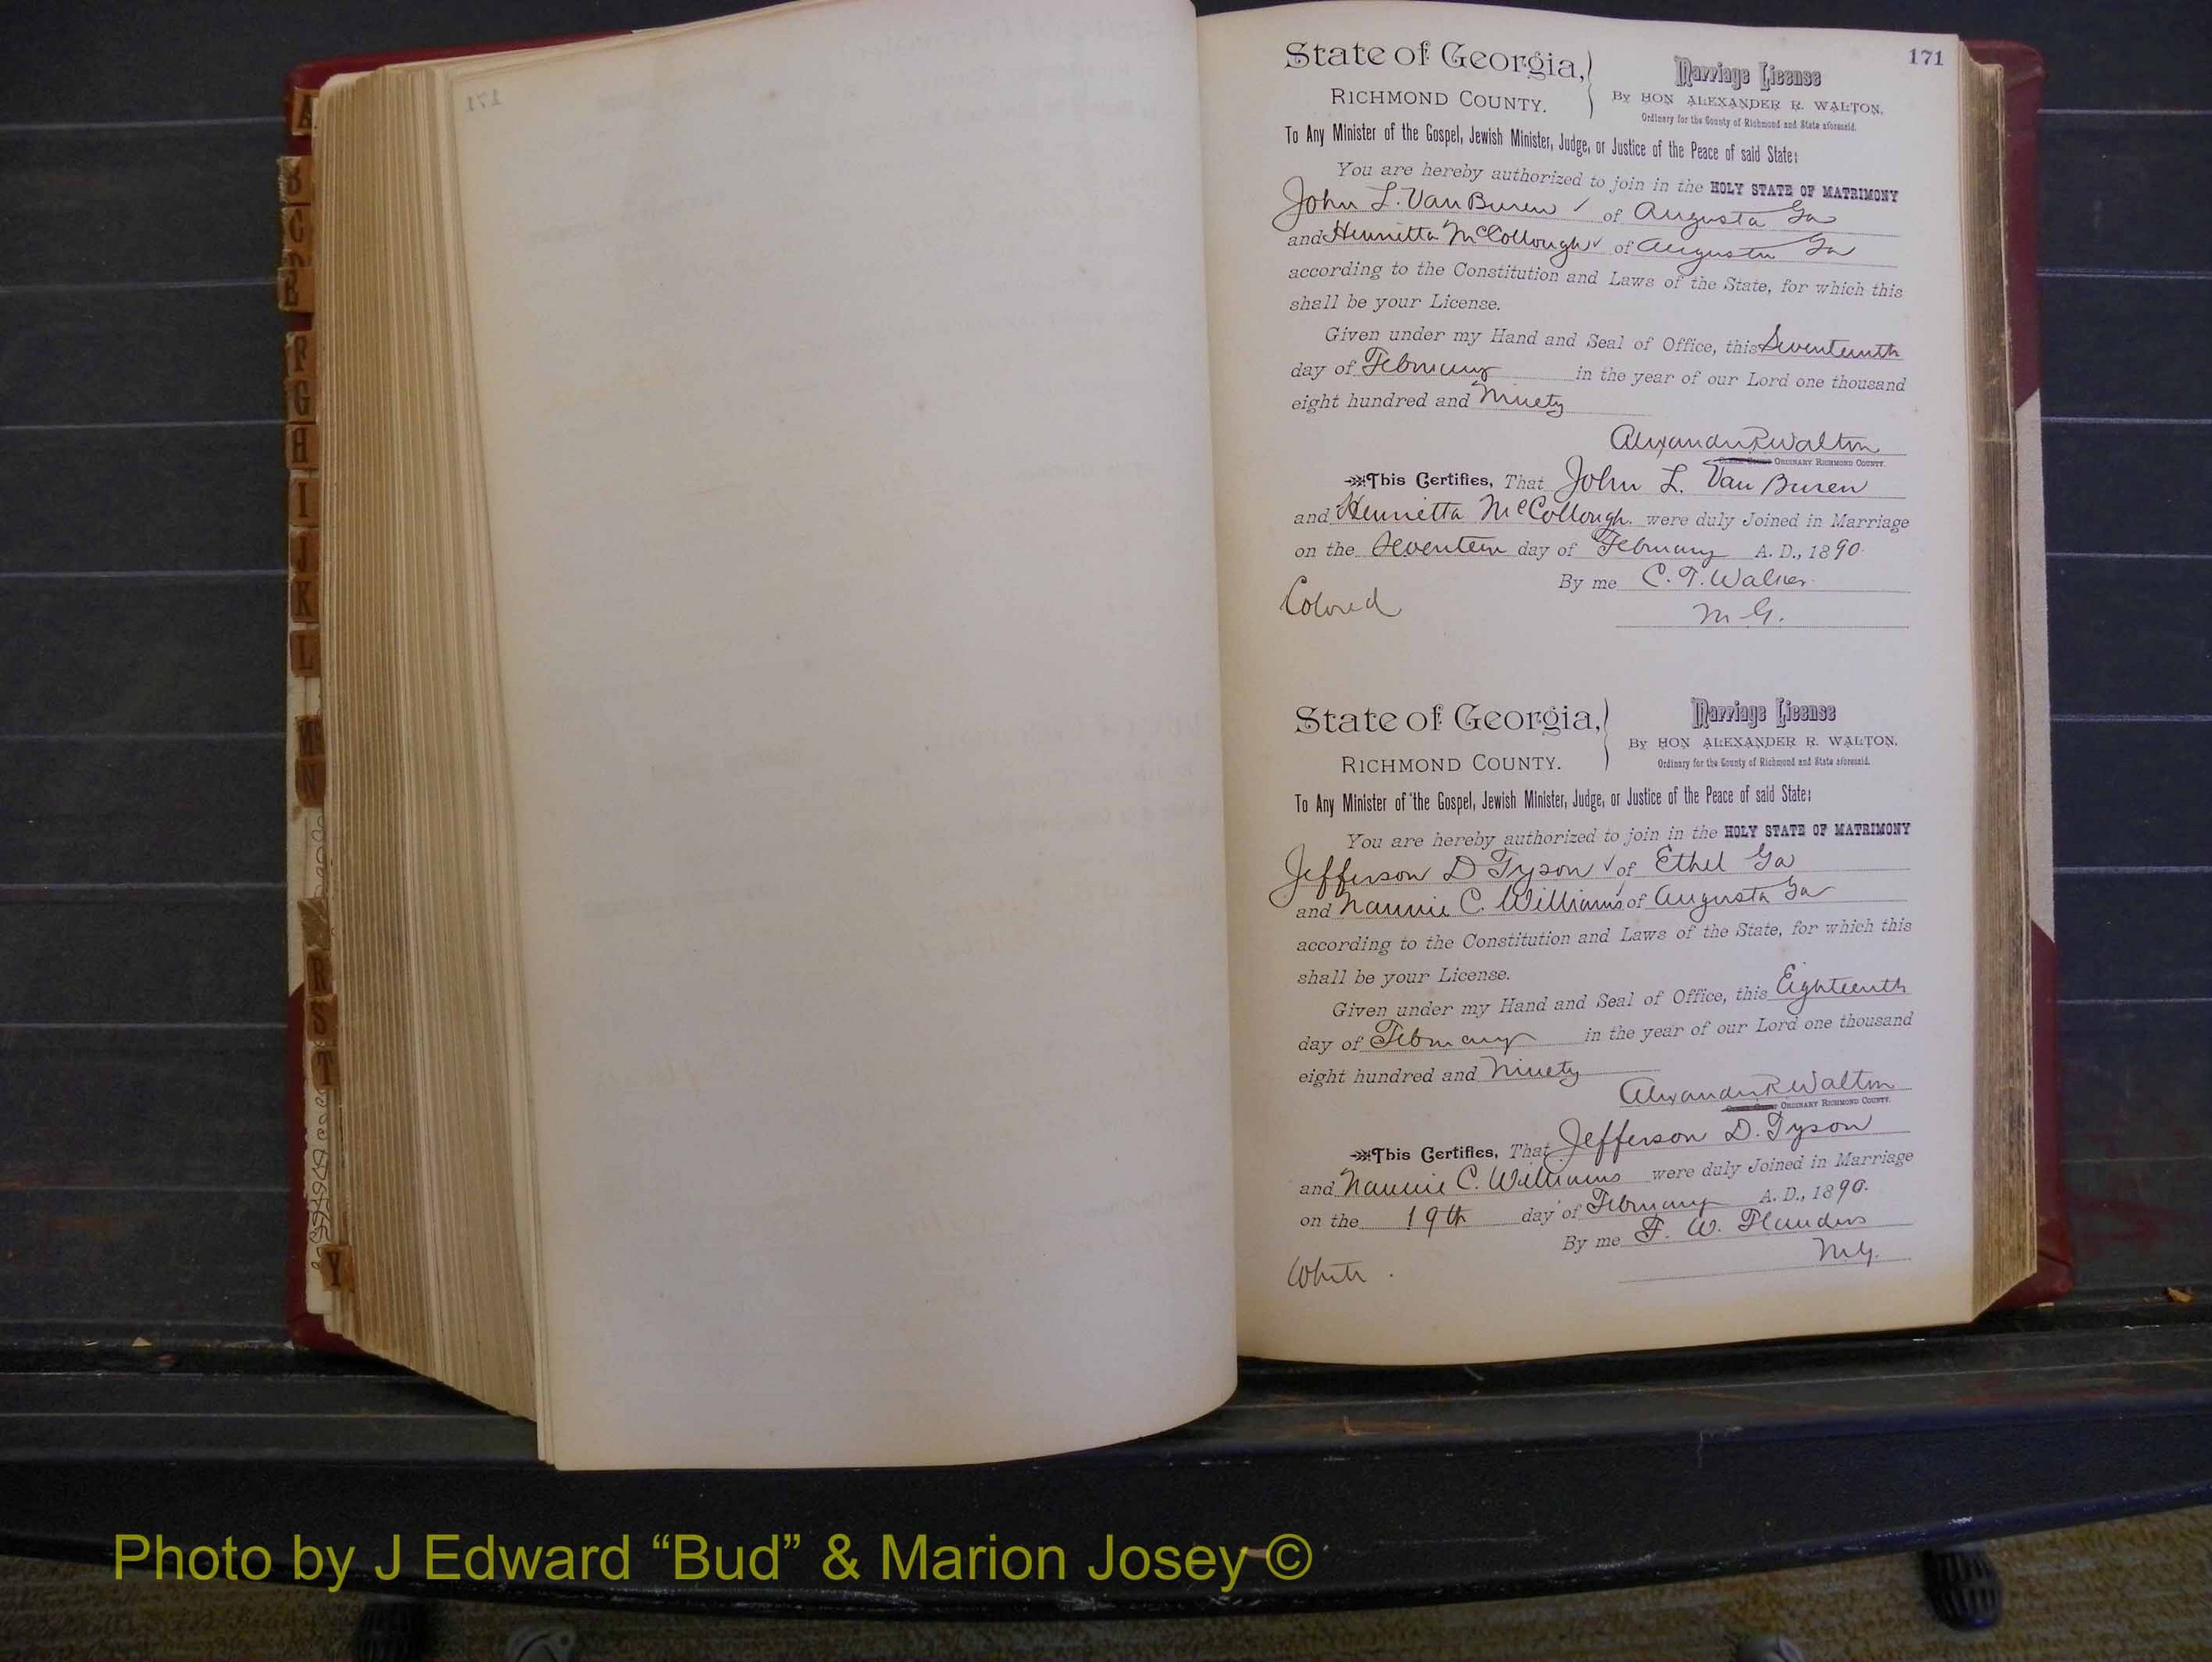 171
State of Georgia,
RICHMOND COUNTY.
Marriage License
By HON ALEXANDER R. WALTON,
Ordinary for the County of Richmond and State aforesaid.
To Any Minister of the Gospel, Jewish Minister, Judge, or Justice of the Peace of said State:
You are hereby authorized to join in the HOLY STATE OF MATRIMONY
John L. Van Buren of Augusta Ga
and Henrietta McCollough of Augusta Ga
according to the Constitution and Laws of the State, for which this
shall be your License.
Given under my Hand and Seal of Office, this Seventeenth
day of February in the year of our Lord one thousand
eight hundred and Ninety
Alexander R Walton
ORDINARY RICHMOND COUNTY.
This Certifies, That John L. Van Buren
and Henrietta McCollough were duly Joined in Marriage
on the Seventeen day of February A. D., 1890.
By me C. T. Walker
M G.
Colored
State of Georgia,
RICHMOND COUNTY.
Marriage License
By HON ALEXANDER R. WALTON.
Ordinary for the County of Richmond and State aforesaid.
To Any Minister of the Gospel, Jewish Minister, Judge, or Justice of the Peace of said State:
You are hereby authorized to join in the HOLY STATE OF MATRIMONY
Jefferson D Tyson of Ethel Ga
and Nannie C. Williams of Augusta Ga
according to the Constitution and Laws of the State, for which this
shall be your License.
Given under my Hand and Seal of Office, this Eighteenth
day of February in the year of our Lord one thousand
eight hundred and Ninety
Alexander R Walton
ORDINARY RICHMOND COUNTY.
This Certifies, That Jefferson D. Tyson
and Nannie C. Williams were duly Joined in Marriage
on the 19th day of February A. D., 1890.
By me F. W. Flanders
M.G.
White.
A
B
C
D
E
F
G
H
I
J
K
L
Mc
N
R
S
T
Y
Photo by J Edward “Bud” & Marion Josey ©